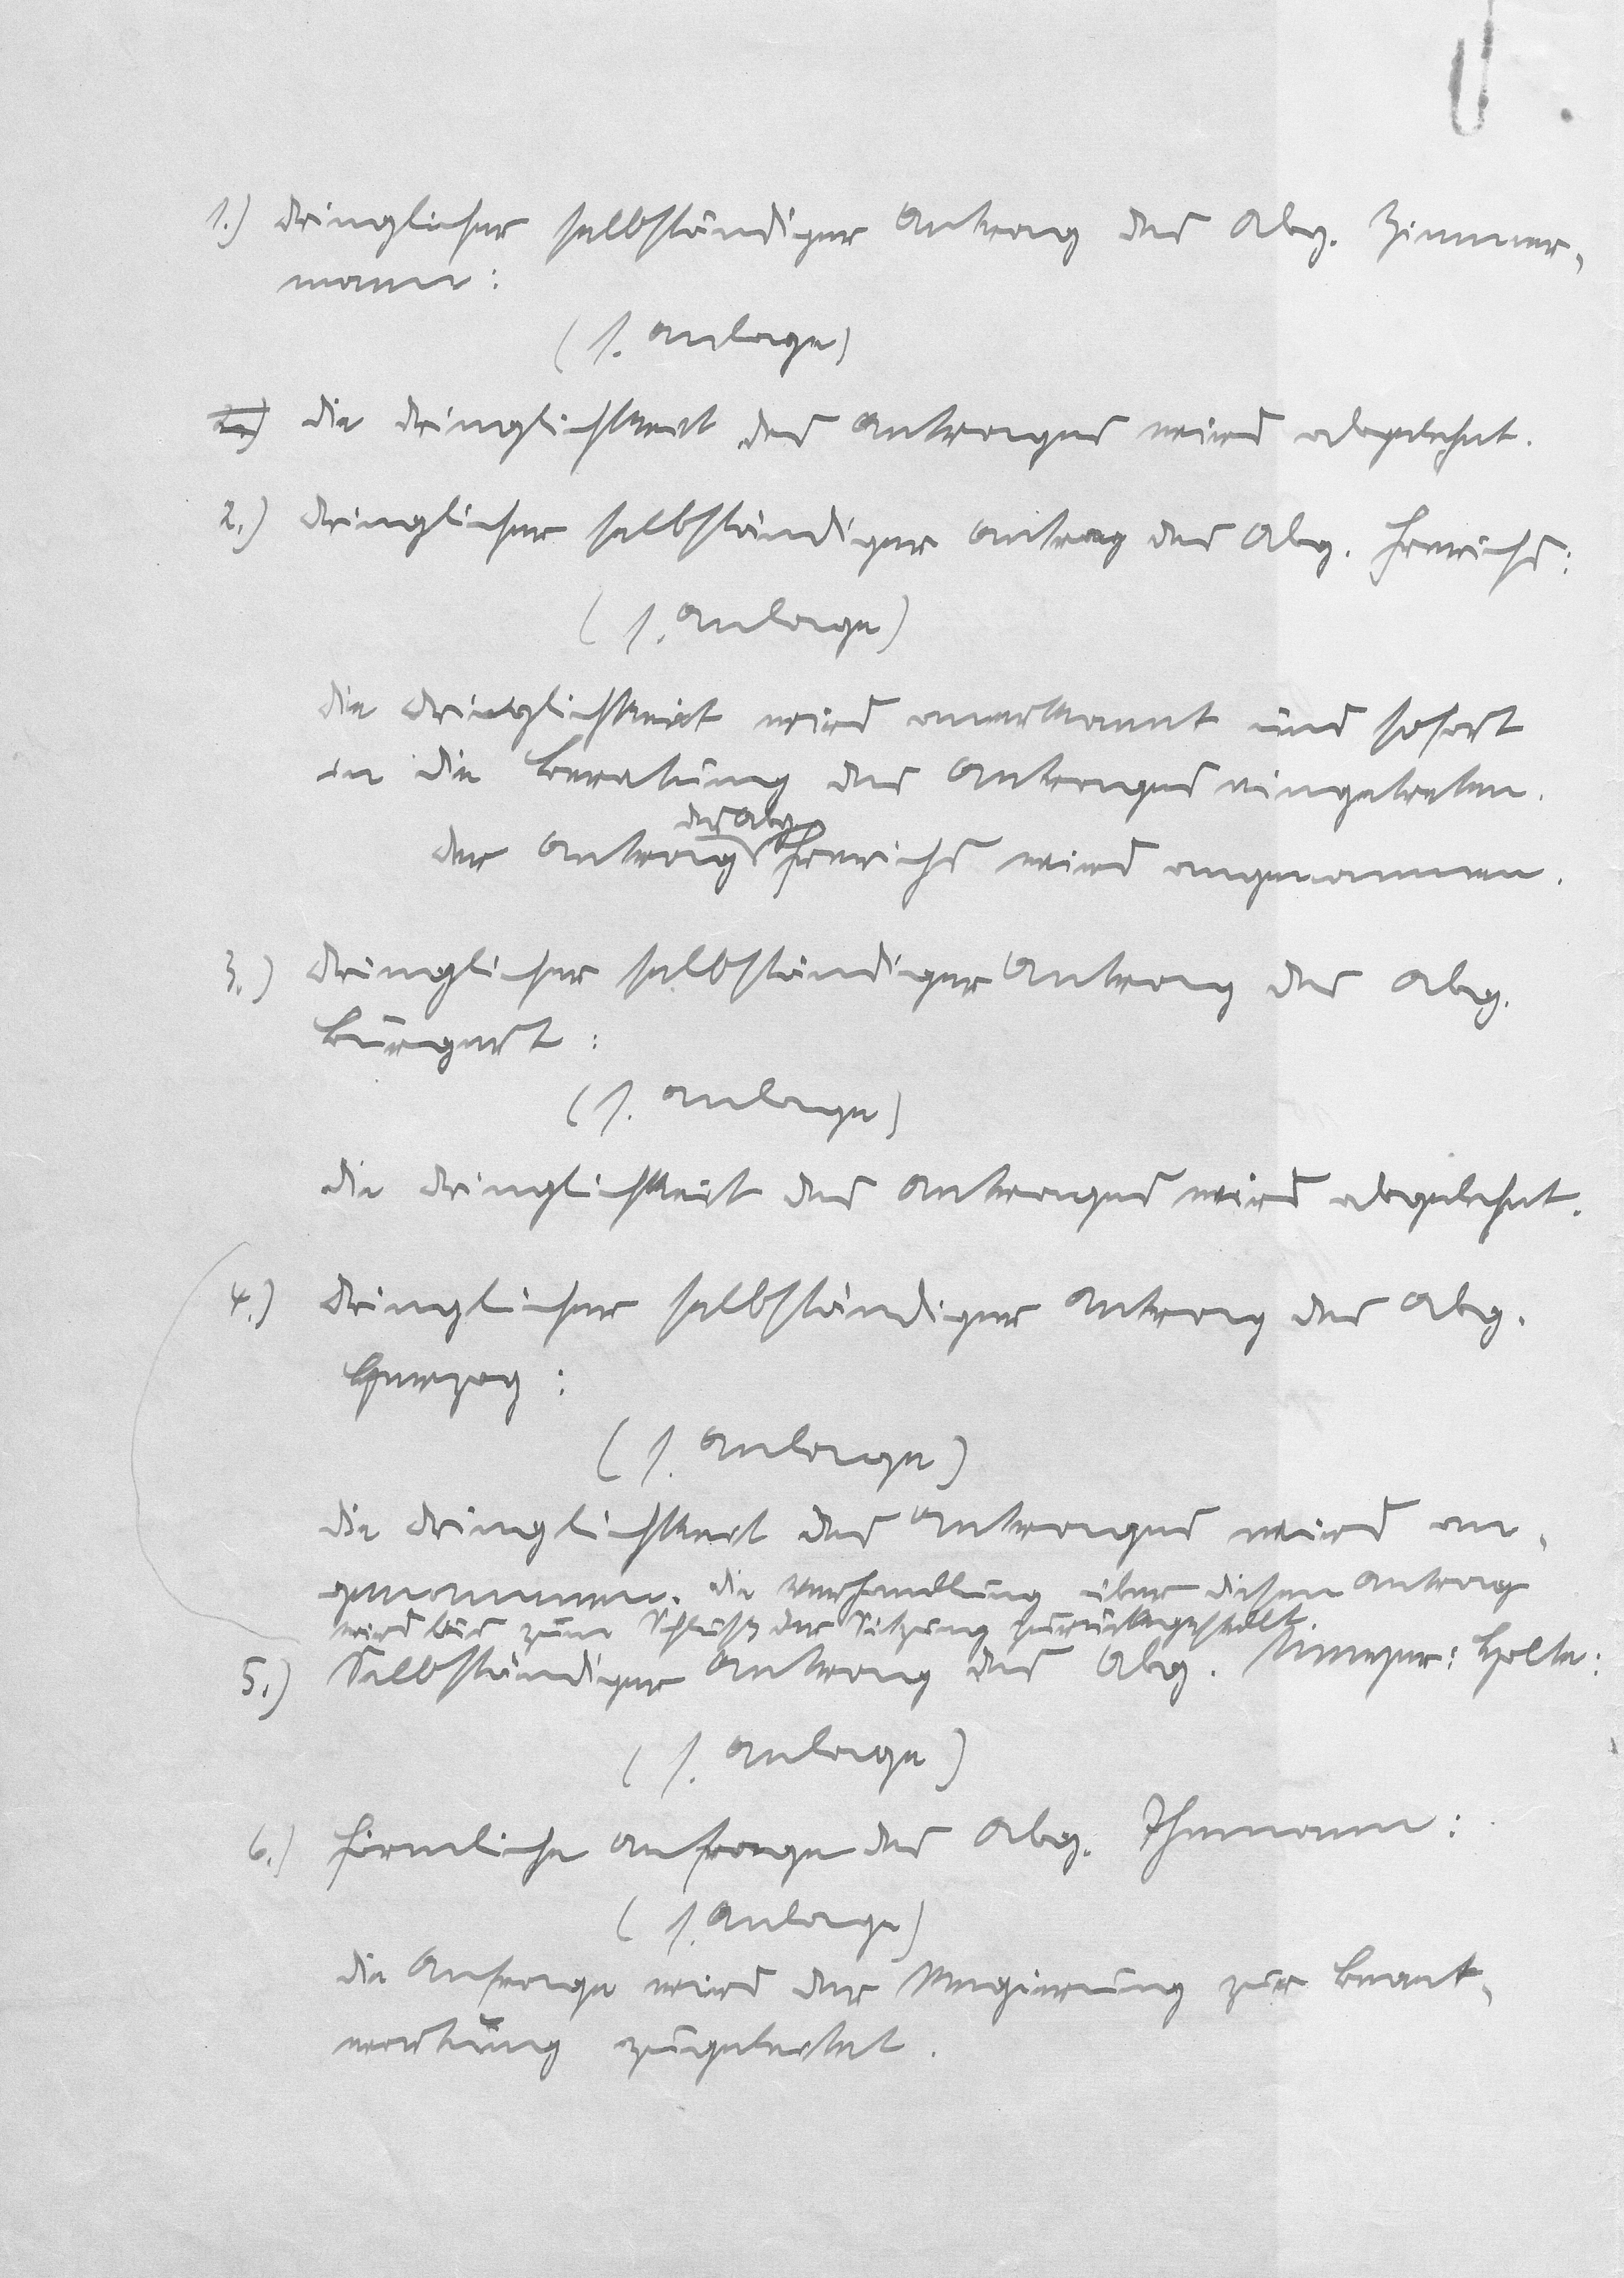 1.) Dringlicher selbständiger Antrag des Abg. Zimmer-
mann:
(s. Anlage)
Die Dringlichkeit des Antrages wird abgelehnt.
2.) Dringlicher selbständiger Antrag des Abg. Frerichs:
(s. Anlage)
Die Dringlichkeit wird anerkannt und sofort
in die Beratung des Antrages eingetreten.
des Abg.
Der Antrag Frerichs wird angenommen.
3.) Dringlicher selbständiger Antrag des Abg.
Bürgert:
(s. Anlage)
Die Dringlichkeit des Antrages wird abgelehnt.
4.) Dringlicher selbständiger Antrag des Abg.
Herzog:
(s. Anlage)
Die Dringlichkeit des Antrages wird an-
genommen. Die Verhandlung über diesen Antrag
wird bis zum Schluß der Sitzung zurückgestellt.
5.) Selbständiger Antrag des Abg. Holte:
(s. Anlage)
6.) Förmliche Anfrage des Abg.
(s. Anlage)
Die Anfrage wird der Regierung zur Beant-
wortung zugeleitet.